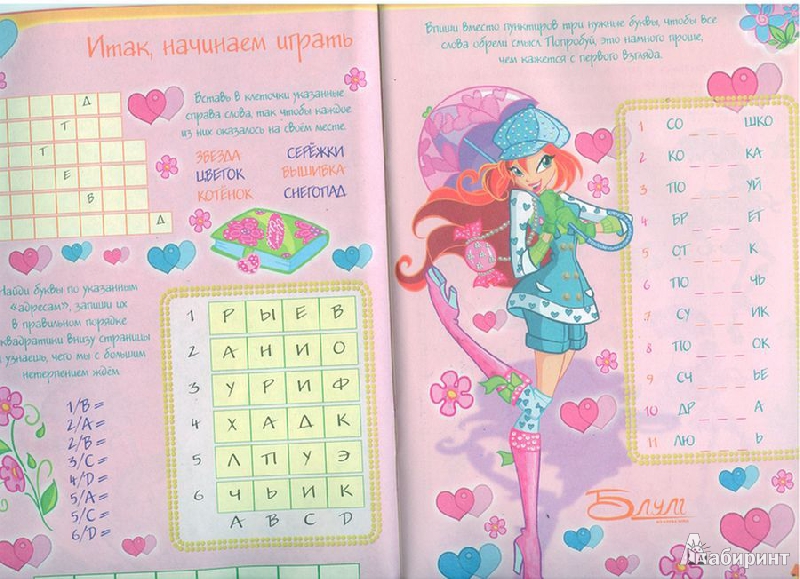 Итак, начинаем играть
Д
Т
Т
Е
В
Д
Вставь в клеточки указанные
справа слова, так чтобы каждое
из них оказалось на своём месте.
ЗВЕЗДА СЕРЁЖКИ
ЦВЕТОК ВЫШИВКА
КОТЁНОК СНЕГОПАД
Найди буквы по указанным
«адресам», запиши их
в правильном порядке
в квадратики внизу страницы
и узнаешь, чего мы с большим
нетерпением ждём.
1/B =
2/A =
2/B =
3/C =
4/D =
5/A =
5/C =
6/D =
1 Р Ы Е В
2 А Н И О
3 У Р И Ф
4 Х А Д К
5 Л П У Э
6 Ч Ь И К
A B C D
Впиши вместо пунктиров три нужные буквы, чтобы все
слова обрели смысл. Попробуй, это намного проще,
чем кажется с первого взгляда.
1 СО _ _ _ ШКО
2 КО _ _ _ КА
3 ПО _ _ _ УЙ
4 БР _ _ _ ЕТ
5 ОТ _ _ _ К
6 ПО _ _ _ ЧЬ
7 СУ _ _ _ ИК
8 ПО _ _ _ ОК
9 СЧ _ _ _ ЬЕ
10 ДР _ _ _ А
11 ЛЮ _ _ _ Ь
Блум
Лабиринт